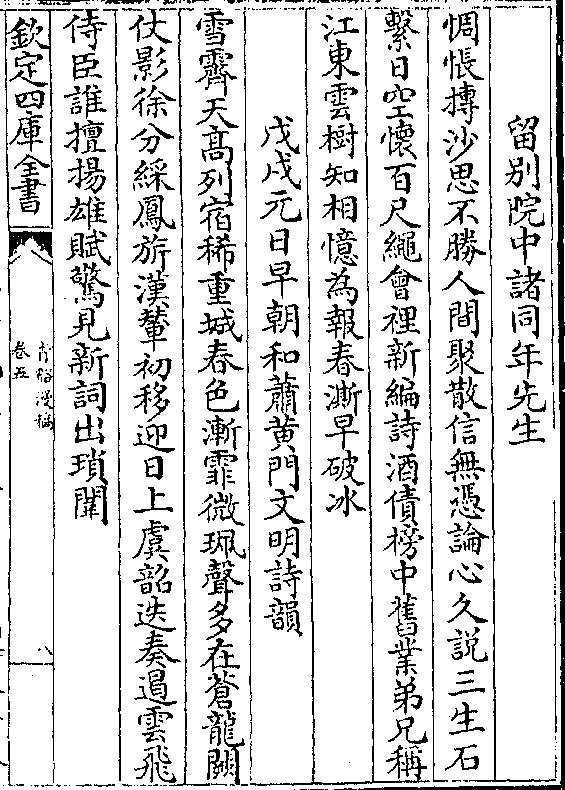 留别院中諸同年先生
惆悵摶沙思不勝人間聚散信無憑論心久說三生石
繫日空懷百尺繩會裡新編詩酒債榜中舊業弟兄稱
江東雲樹知相憶為報春澌早破冰
戊戌元日早朝和蕭黃門文明詩韻
雪霽天高列宿稀重城春色漸霏微珮聲多在蒼龍闕
仗影徐分綵鳳旂漢輦初移迎日上虞韶迭奏遏雲飛
侍臣誰擅揚雄賦驚見新詞出瑣闈
欽定四庫全書
卷五
八